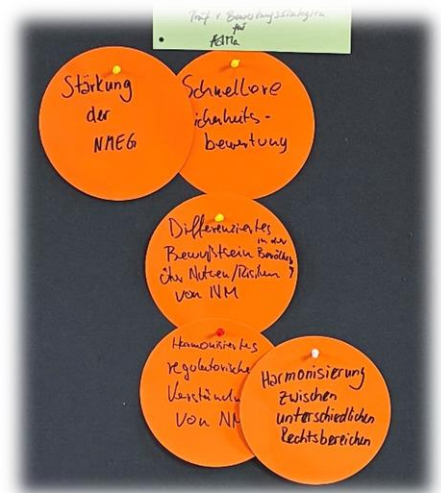 Test- & Bewertungsstrategien
für
AdMa
Stärkung
der
NMEG
Schnellere
icherheits-
bewertung
Differenziertes
Bewußtsein in der Bevölk
über Nutzen/Risiken ?
von NM
Harmonisiertes
regulatorische
Verständn
von NM
Harmonisierung
zwischen
unterschiedlichen
Rechtsbereichen